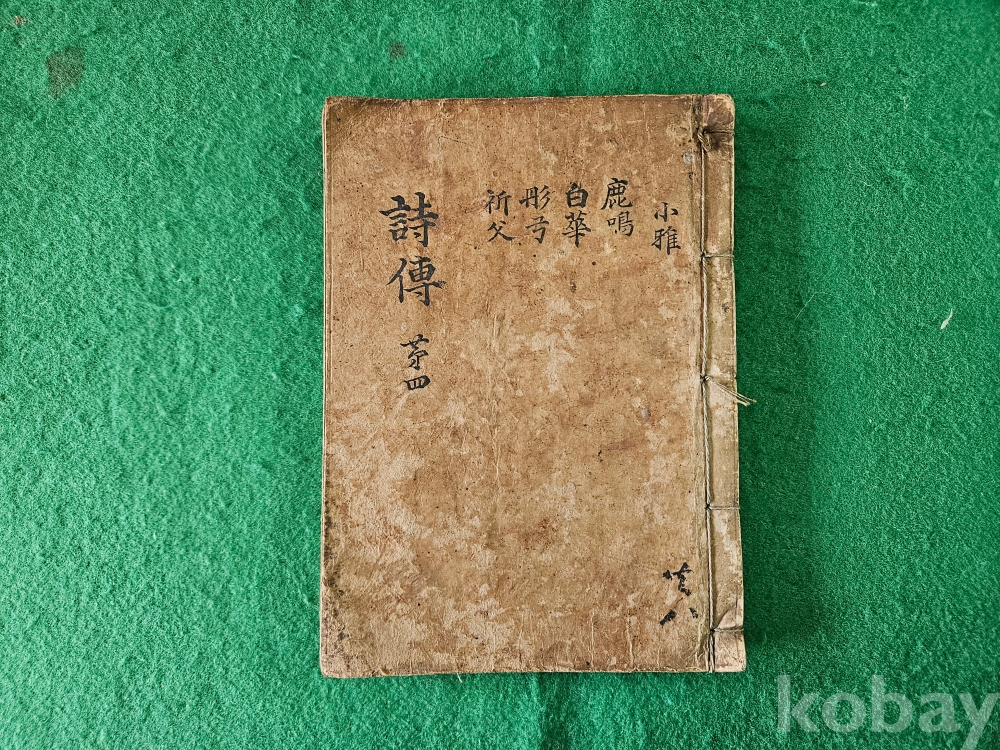 小雅
鹿鳴
白華
彤弓
祈父
詩傳 苐四
共八
kobay